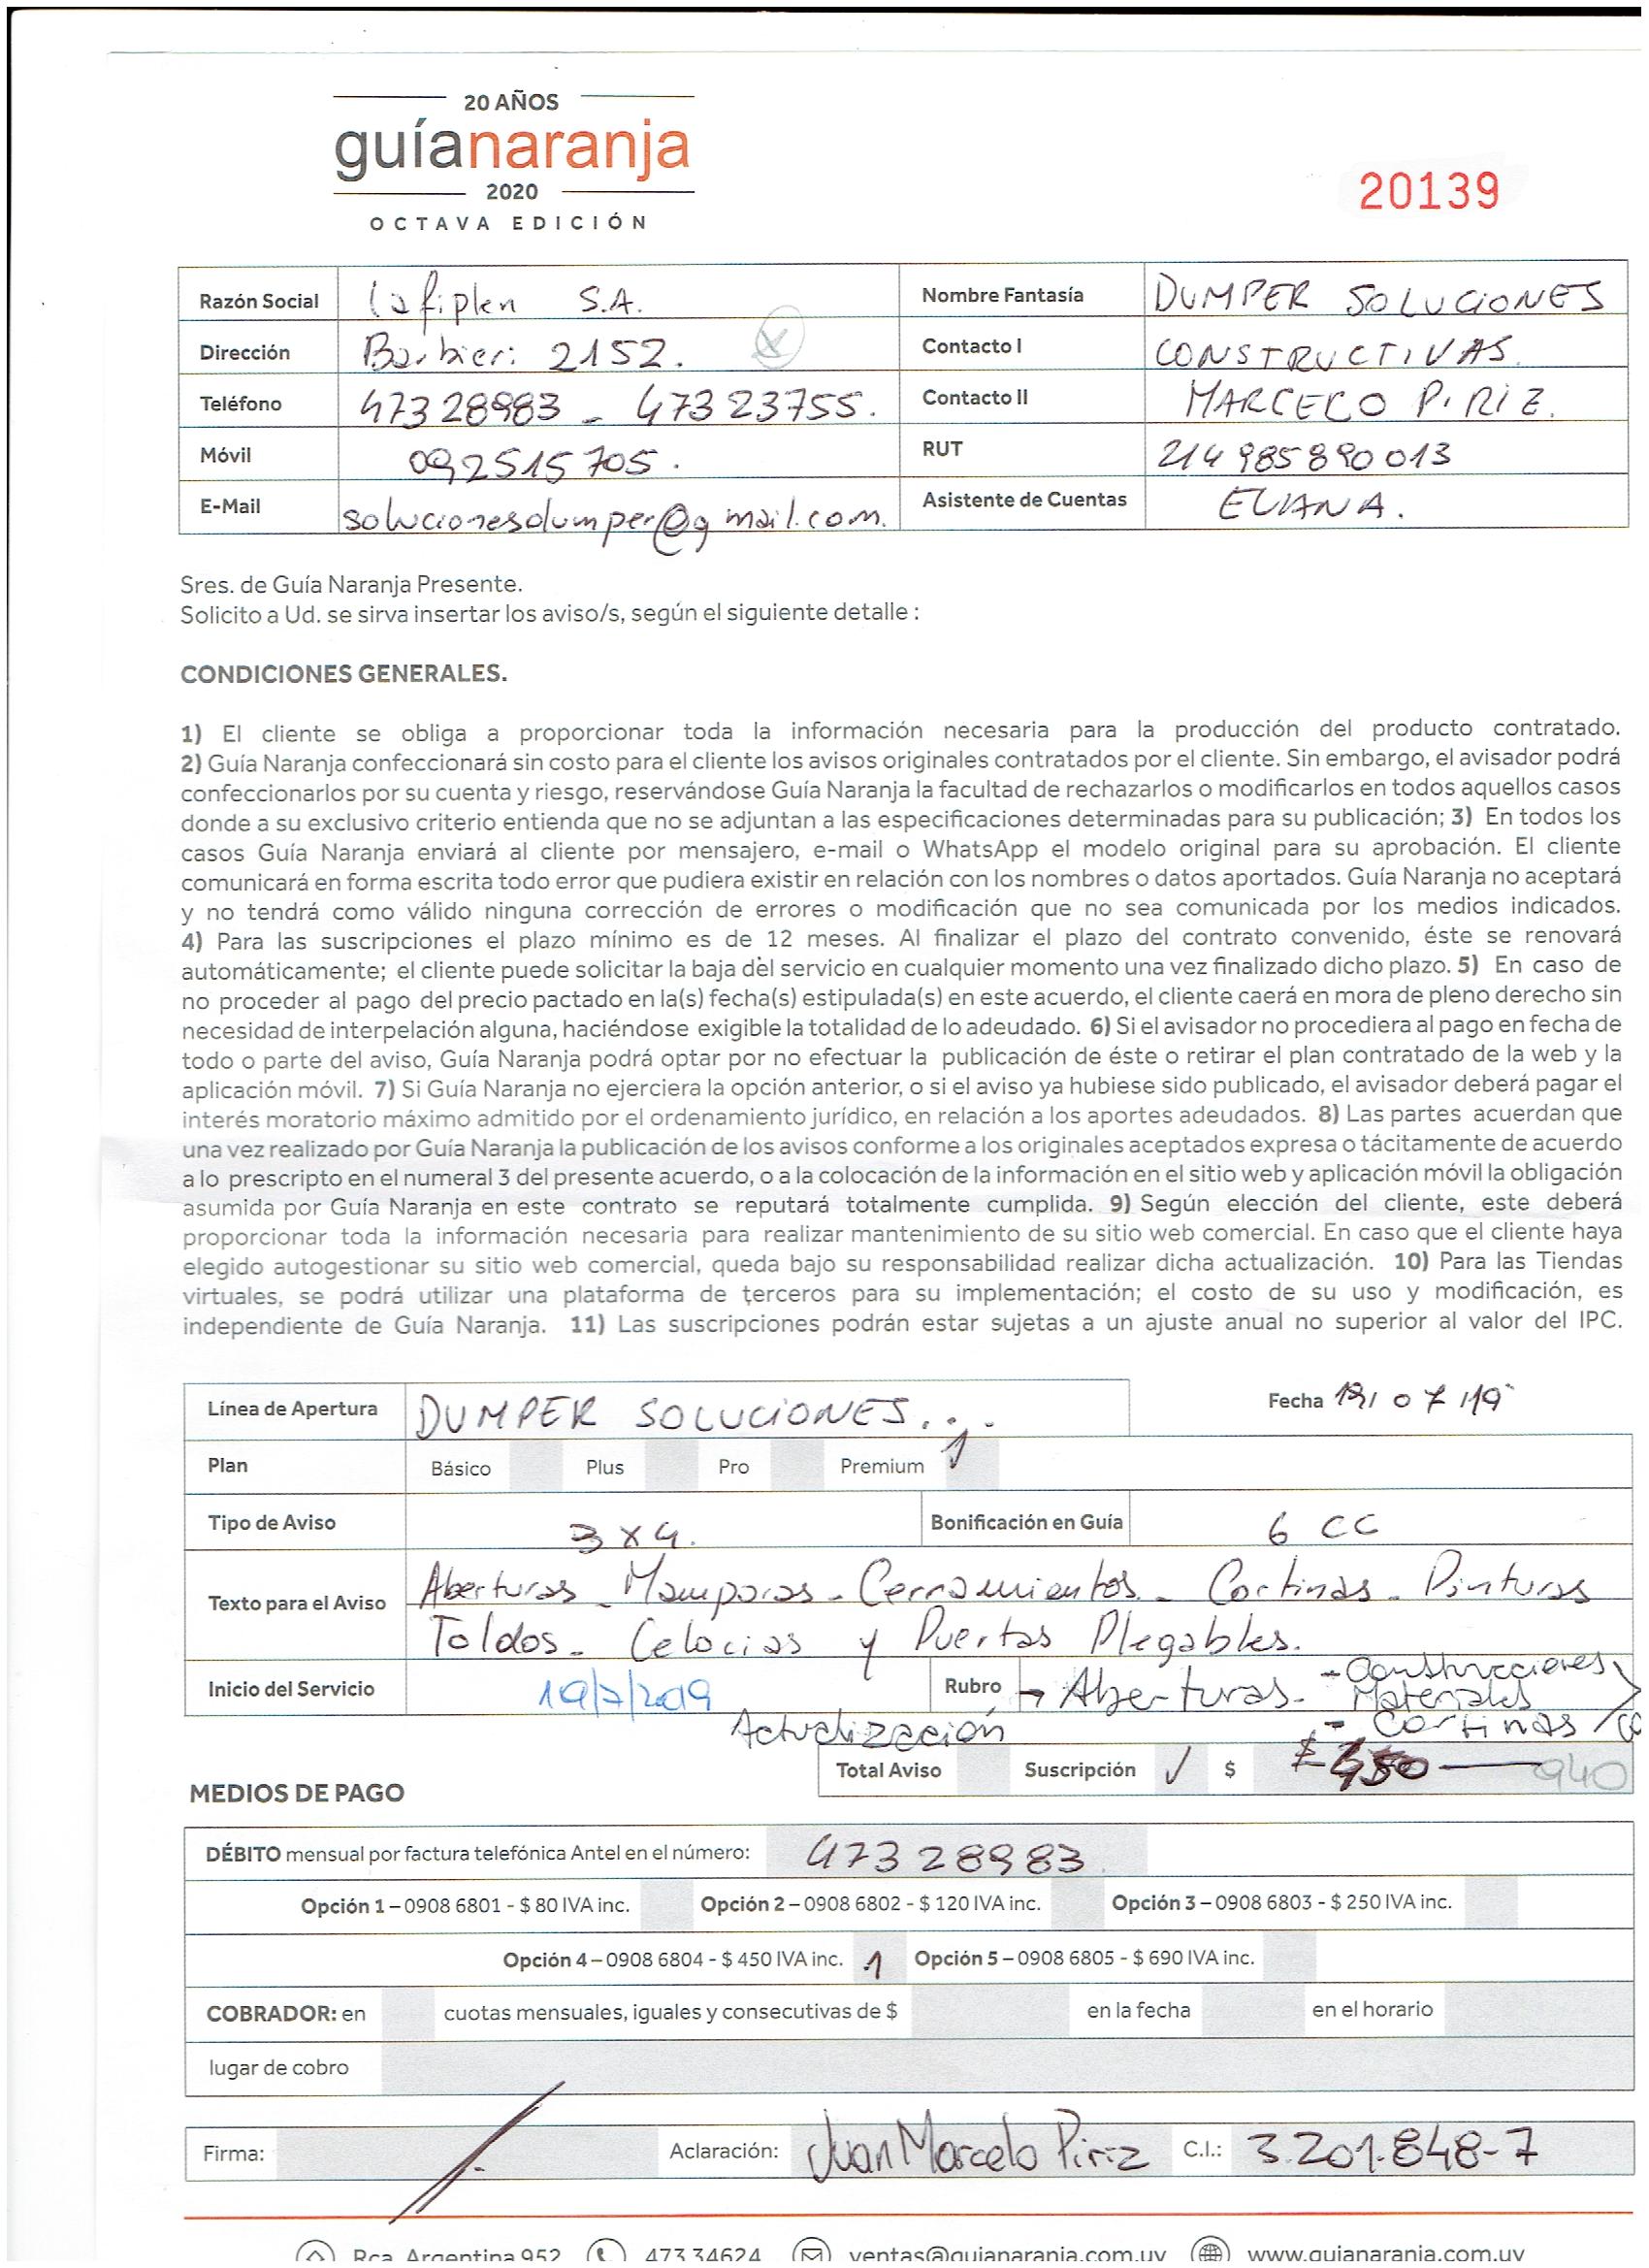 20 AÑOS
guíanaranja
2020
OCTAVA EDICIÓN
20139
Razón Social Lafiplen S.A. Nombre Fantasía DUMPER SOLUCIONES
Dirección Barbieri 2152. Contacto I CONSTRUCTIVAS.
Teléfono 47328983 - 47323755. Contacto II MARCELO PIRIZ.
Móvil 092515705. RUT 214985890013
E-Mail solucionesdumper@gmail.com. Asistente de Cuentas ELIANA.
Sres. de Guía Naranja Presente.
Solicito a Ud. se sirva insertar los aviso/s, según el siguiente detalle :
CONDICIONES GENERALES.
1) El cliente se obliga a proporcionar toda la información necesaria para la producción del producto contratado.
2) Guía Naranja confeccionará sin costo para el cliente los avisos originales contratados por el cliente. Sin embargo, el avisador podrá
confeccionarlos por su cuenta y riesgo, reservándose Guía Naranja la facultad de rechazarlos o modificarlos en todos aquellos casos
donde a su exclusivo criterio entienda que no se adjuntan a las especificaciones determinadas para su publicación; 3) En todos los
casos Guía Naranja enviará al cliente por mensajero, e-mail o WhatsApp el modelo original para su aprobación. El cliente
comunicará en forma escrita todo error que pudiera existir en relación con los nombres o datos aportados. Guía Naranja no aceptará
y no tendrá como válido ninguna corrección de errores o modificación que no sea comunicada por los medios indicados.
4) Para las suscripciones el plazo mínimo es de 12 meses. Al finalizar el plazo del contrato convenido, éste se renovará
automáticamente; el cliente puede solicitar la baja del servicio en cualquier momento una vez finalizado dicho plazo. 5) En caso de
no proceder al pago del precio pactado en la(s) fecha(s) estipulada(s) en este acuerdo, el cliente caerá en mora de pleno derecho sin
necesidad de interpelación alguna, haciéndose exigible la totalidad de lo adeudado. 6) Si el avisador no procediera al pago en fecha de
todo o parte del aviso, Guía Naranja podrá optar por no efectuar la publicación de éste o retirar el plan contratado de la web y la
aplicación móvil. 7) Si Guía Naranja no ejerciera la opción anterior, o si el aviso ya hubiese sido publicado, el avisador deberá pagar el
interés moratorio máximo admitido por el ordenamiento jurídico, en relación a los aportes adeudados. 8) Las partes acuerdan que
una vez realizado por Guía Naranja la publicación de los avisos conforme a los originales aceptados expresa o tácitamente de acuerdo
a lo prescripto en el numeral 3 del presente acuerdo, o a la colocación de la información en el sitio web y aplicación móvil la obligación
asumida por Guía Naranja en este contrato se reputará totalmente cumplida. 9) Según elección del cliente, este deberá
proporcionar toda la información necesaria para realizar mantenimiento de su sitio web comercial. En caso que el cliente haya
elegido autogestionar su sitio web comercial, queda bajo su responsabilidad realizar dicha actualización. 10) Para las Tiendas
virtuales, se podrá utilizar una plataforma de terceros para su implementación; el costo de su uso y modificación, es
independiente de Guía Naranja. 11) Las suscripciones podrán estar sujetas a un ajuste anual no superior al valor del IPC.
Línea de Apertura DUMPER SOLUCIONES... Fecha 19/07/19
Plan Básico Plus Pro Premium
Tipo de Aviso 3 x 4. Bonificación en Guía 6 CC
Texto para el Aviso Aberturas - Mamparas - Cerramientos - Cortinas - Pinturas
Toldos - Celocias y Puertas Plegables.
Inicio del Servicio 19/7/2019 Rubro → Aberturas - - Construcciones
Materiales
Actualización - Cortinas
Total Aviso Suscripción ✓ $ $ 450 — 940
MEDIOS DE PAGO
DÉBITO mensual por factura telefónica Antel en el número: 47328983
Opción 1 – 0908 6801 - $ 80 IVA inc. Opción 2 – 0908 6802 - $ 120 IVA inc. Opción 3 – 0908 6803 - $ 250 IVA inc.
Opción 4 – 0908 6804 - $ 450 IVA inc. 1 Opción 5 – 0908 6805 - $ 690 IVA inc.
COBRADOR: en cuotas mensuales, iguales y consecutivas de $ en la fecha en el horario
lugar de cobro
Firma: Aclaración: Juan Marcelo Piriz C.I.: 3.201.848-7
Rca. Argentina 952 473 34624 ventas@guianaranja.com.uy www.guianaranja.com.uy